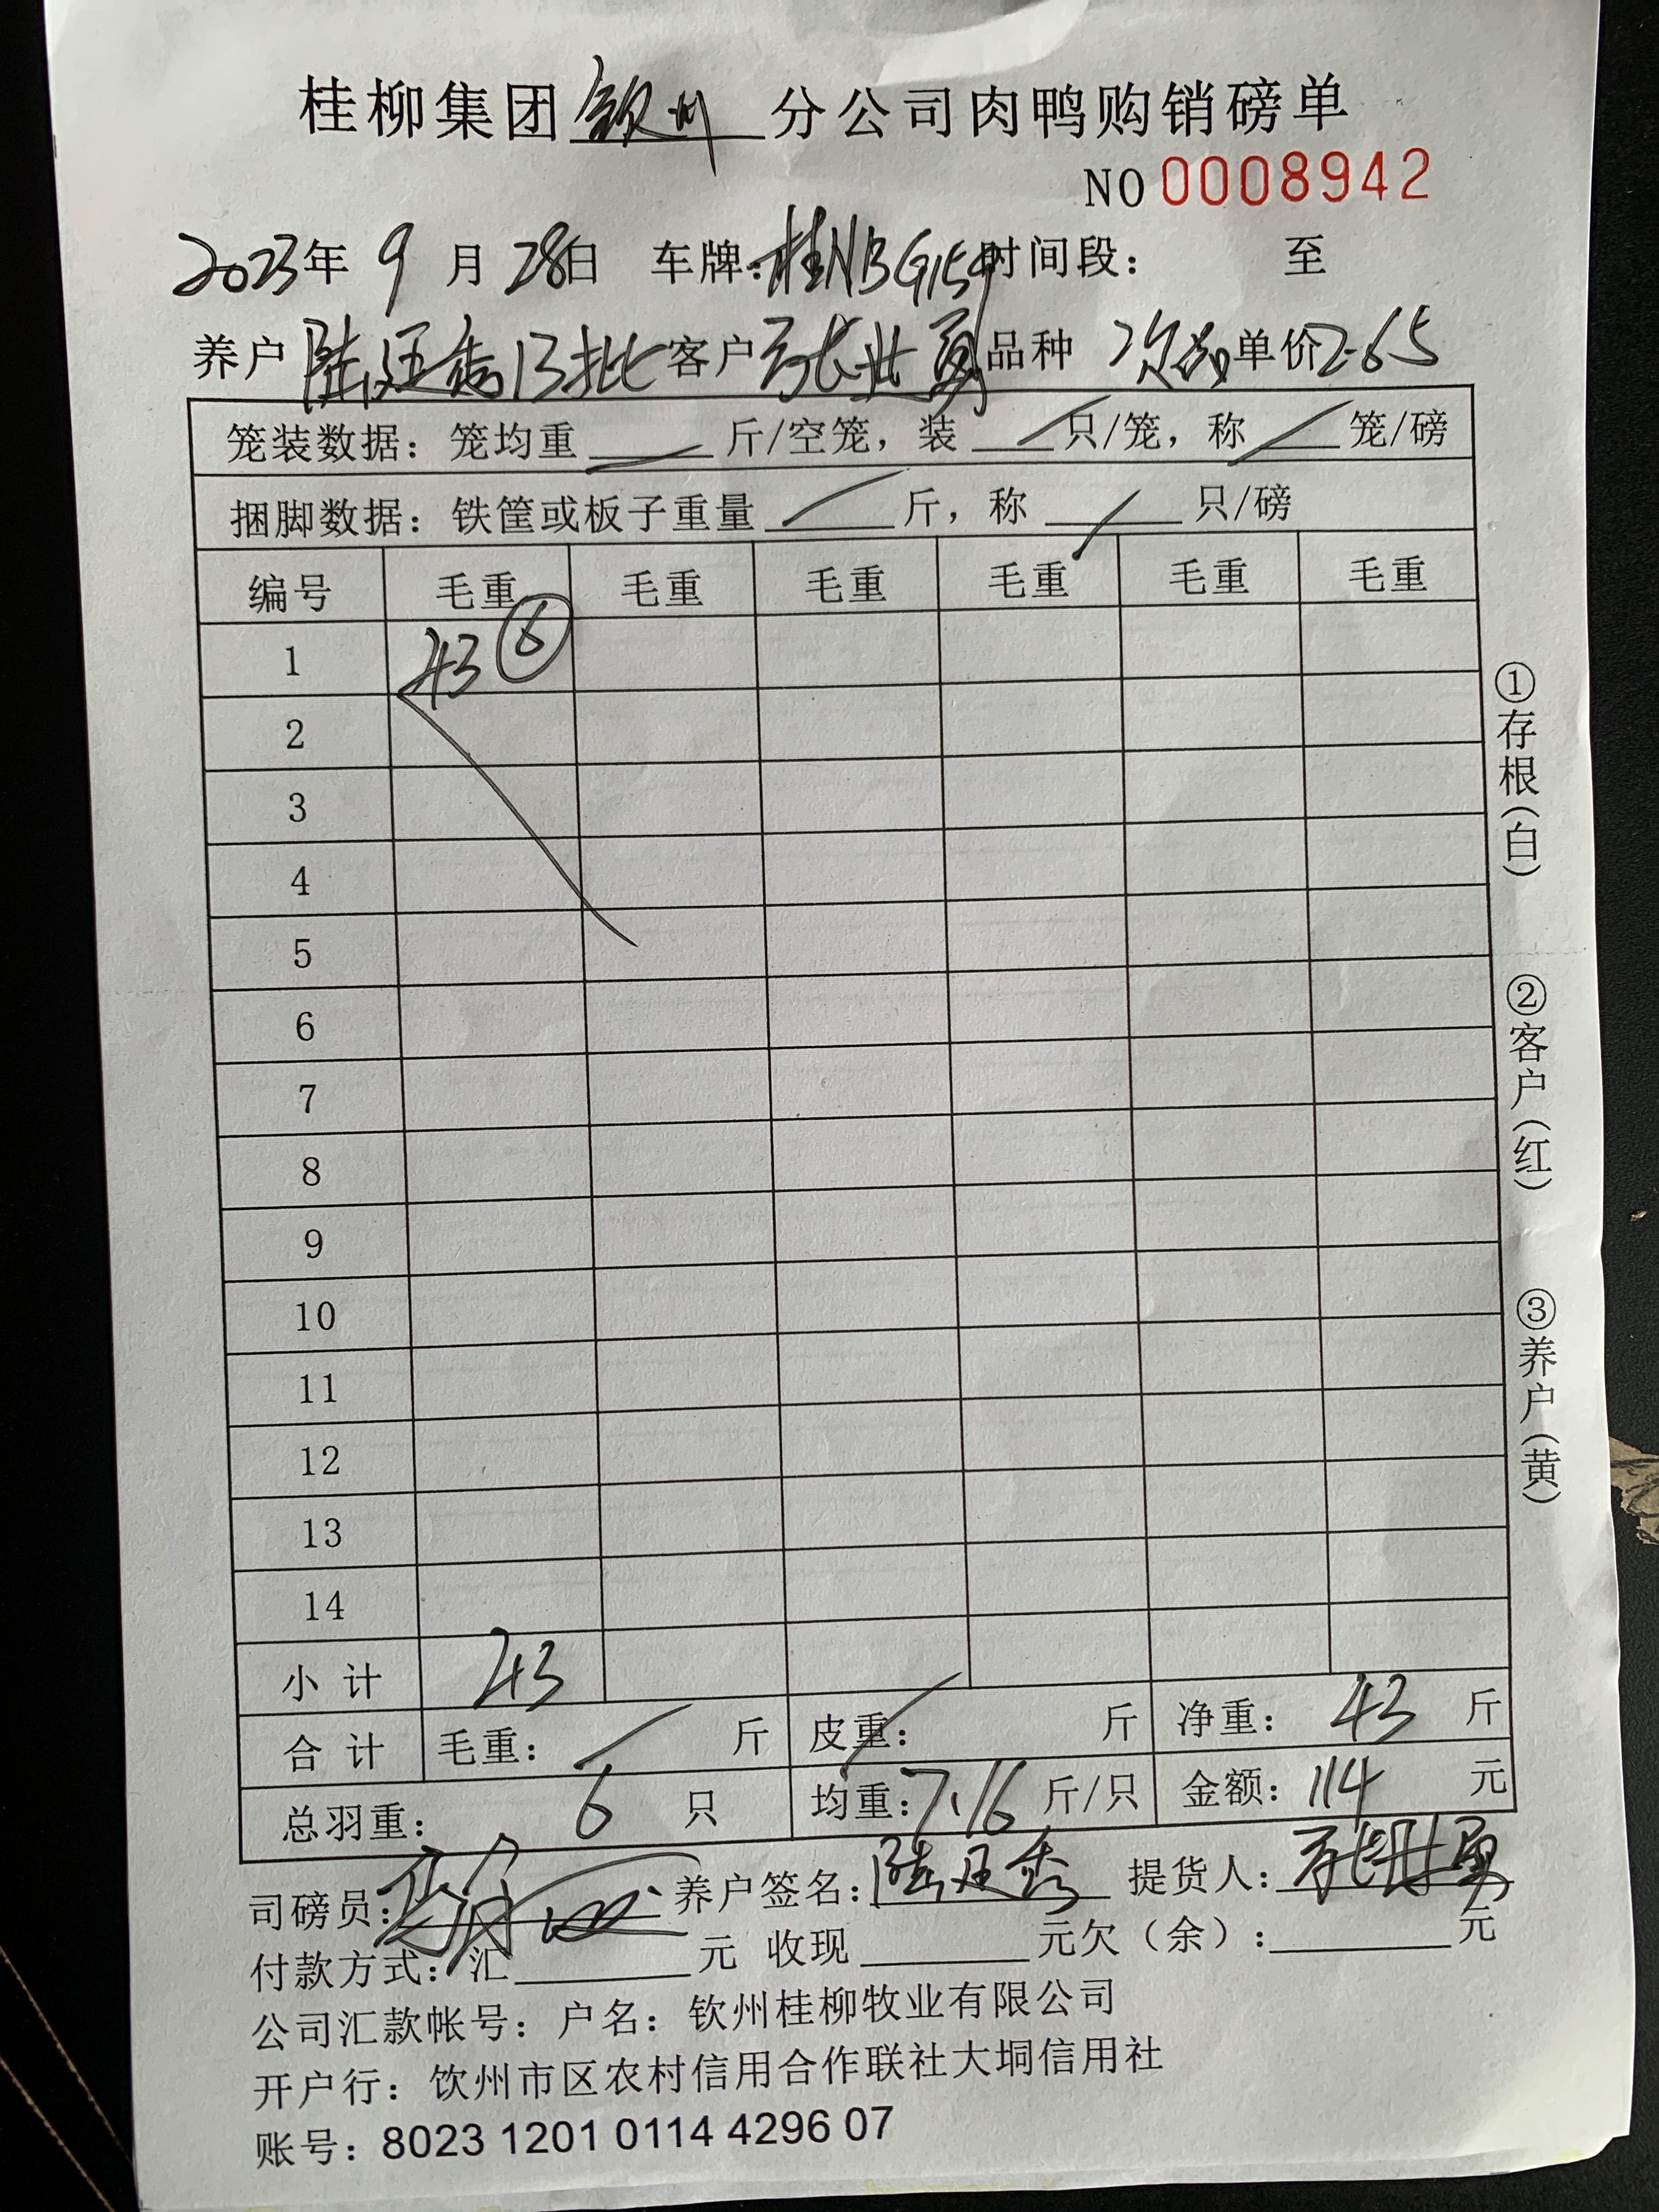 桂柳集团钦州分公司肉鸭购销磅单
NO 0008942
2023年 9 月 28日 车牌:桂NBG159 时间段: 至
养户 陆廷秀13批 客户 张世勇 品种 次品 单价 2.65
笼装数据: 笼均重 斤/空笼, 装 只/笼, 称 笼/磅
捆脚数据: 铁筐或板子重量 斤, 称 只/磅
编号 毛重 毛重 毛重 毛重 毛重 毛重
1 43 ⑥
2
3
4
5
6
7
8
9
10
11
12
13
14
小 计 43
合 计 毛重: 斤 皮重: 斤 净重: 43 斤
总羽重: 6 只 均重: 7.16 斤/只 金额: 114 元
司磅员: 养户签名: 陆廷秀 提货人: 张世勇
付款方式: 汇 元 收现 元欠(余): 元
公司汇款帐号: 户名: 钦州桂柳牧业有限公司
开户行: 钦州市区农村信用合作联社大垌信用社
账号: 8023 1201 0114 4296 07
①存根(白)
②客户(红)
③养户(黄)